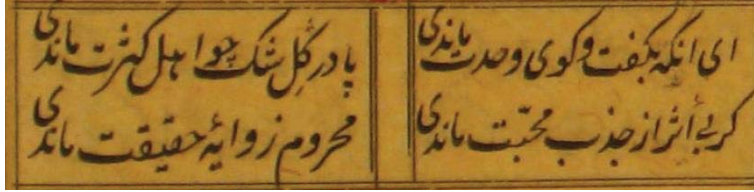 ای انکه بکفت و کوی وحدت ماندی
پا در گل شک چو اهل کثرت ماندی
کر بی أثر از جذب محبّت ماندی
محروم ز روایهٔ حقیقت ماندی